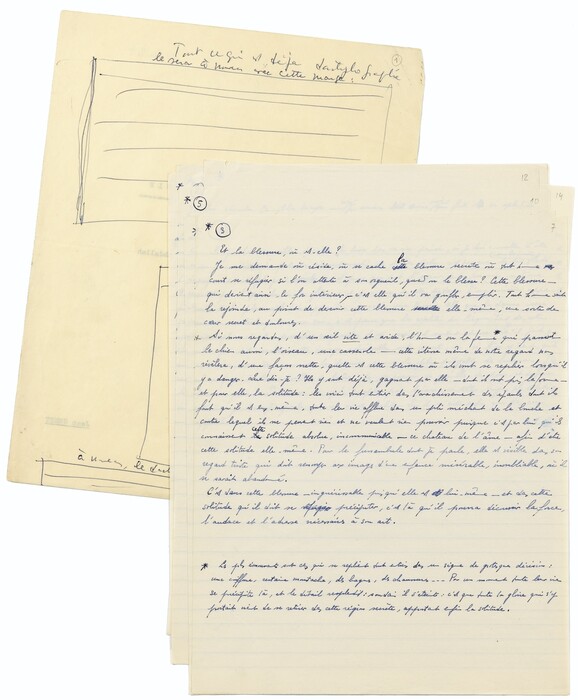 Tout ce qui est déjà dactylographié
le sera à nouveau avec cette marge :
1
12
10
14
7
* 5
* 3
Et la blessure, où est-elle ?
Je me demande où réside, où se cache la blessure secrète où tout homme
court se réfugier si l'on attente à son orgueil, quand on le blesse ? Cette blessure —
qui devient ainsi le for intérieur — c'est elle qu'il va gonfler, emplir. Tout homme sait
la rejoindre, au point de devenir cette blessure elle-même, une sorte de
cœur secret et douloureux.
* Si nous regardons, d'un œil vite et avide, l'homme ou la femme * qui passent —
le chien aussi, l'oiseau, une casserole — cette vitesse même de notre regard nous
révèlera, d'une façon nette, quelle est cette blessure où ils vont se replier lorsqu'il
y a danger. Que dis-je ? Ils y sont déjà, gagnant par elle — dont ils ont pris la forme —
et pour elle, la solitude : les voici tout entiers dans l'avachissement des épaules dont ils
font qu'il est eux-mêmes, toute leur vie afflue dans un pli méchant de la bouche et
contre lequel ils ne peuvent rien et ne veulent rien pouvoir puisque c'est par lui qu'ils
connaissent cette solitude absolue, incommunicable — ce château de l'âme — afin d'être
cette solitude elle-même. Pour le funambule dont je parle, elle est visible dans son
regard triste qui doit renvoyer aux images d'une enfance misérable, inoubliable, où il
se savait abandonné.
C'est dans cette blessure — inguérissable puisqu'elle est lui-même — et dans cette
solitude qu'il doit se précipiter, c'est là qu'il pourra découvrir la force,
l'audace et l'adresse nécessaires à son art.
* Les plus émouvants sont ceux qui se replient tout entiers dans un signe de grotesque dérision :
une coiffure, certaine moustache, des bagues, des chaussures... Pour un moment toute leur vie
se précipite là, et le détail resplendit : soudain il s'éteint : c'est que toute la gloire qui s'y
portait vient de se retirer dans cette région secrète, apportant enfin la solitude.
à nouveau, le